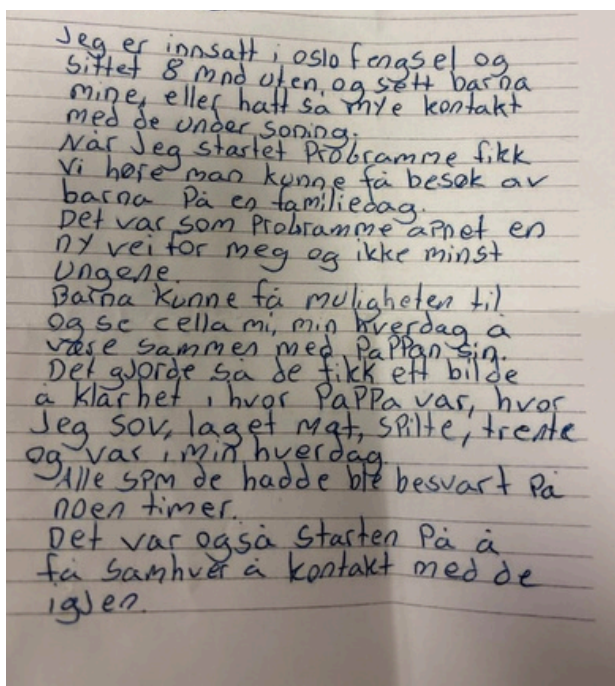 Jeg er innsatt i oslo fengsel og
sittet 8 mnd uten, og sett barna
mine, eller hatt så mye kontakt
med de under soning.
Når Jeg startet Programme fikk
vi høre man kunne få besøk av
barna på en familiedag.
Det var som Programme åpnet en
ny vei for meg og ikke minst
ungene
Barna kunne få muligheten til
og se cella mi, min hverdag å
være sammen med Pappan sin.
Det gjorde så de fikk ett bilde
å klarhet i hvor Pappa var, hvor
Jeg sov, laget mat, spilte, trente
og var i min hverdag.
Alle spm de hadde ble besvart på
noen timer.
Det var også starten på å
få samhver å kontakt med de
igjen.